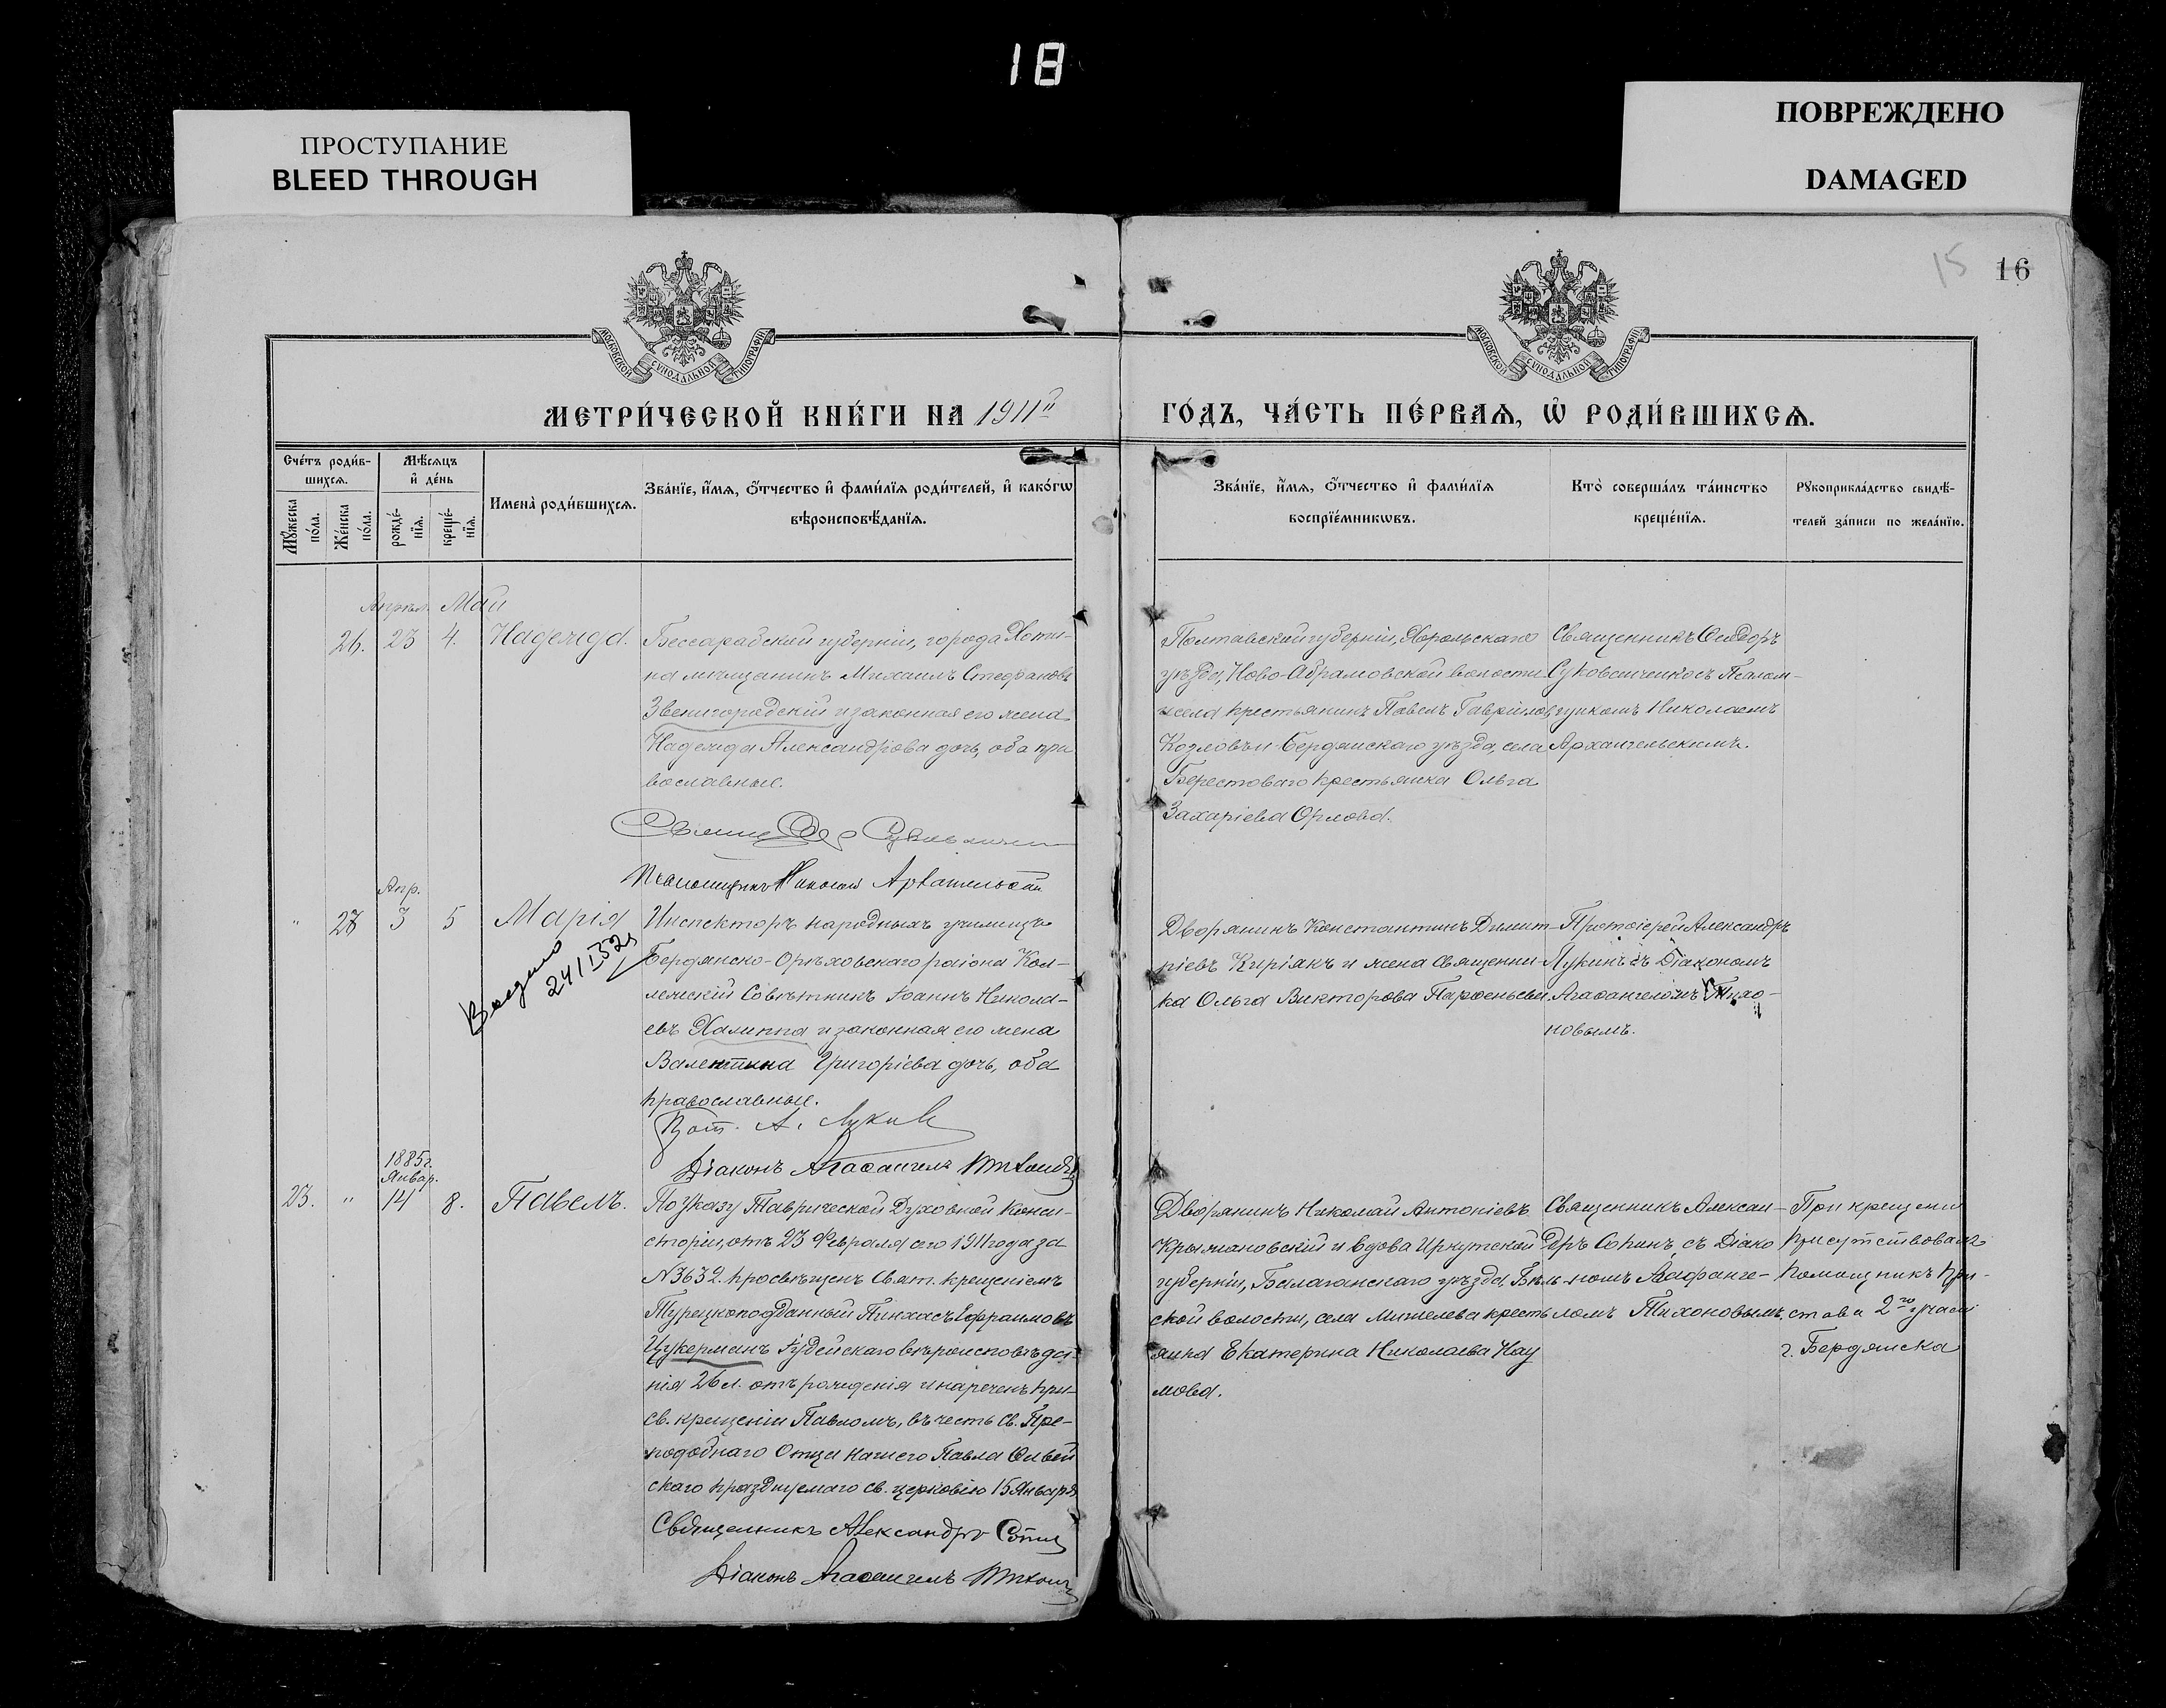 18
ПРОСТУПАНИЕ
BLEED THROUGH
ПОВРЕЖДЕНО
DAMAGED
15 16
МОСКОВСКОЙ СУНОДАЛЬНОЙ ТИПОГРАФІИ
МОСКОВСКОЙ СУНОДАЛЬНОЙ ТИПОГРАФІИ
МЕТРИ́ЧЕСКОЙ КНИ́ГИ НА 1911й
ГО́ДЪ, ЧА́СТЬ ПЕ́РВАѦ, Ѡ РОДИ́ВШИХСѦ.
Сче́тъ роди́в-
шихсѧ.
Мꙋ́жеска
по́ла.
Же́нска
по́ла.
Мѣ́сѧцъ
и҆ де́нь
рожде́-
нїѧ.
креще́-
нїѧ.
Имена̀ роди́вшихсѧ.
Зва́нїе, и҆́мѧ, ѻ҆́тчество и҆ фами́лїѧ роди́телей, и҆ како́гѡ
вѣроисповѣ́данїѧ.
Зва́нїе, и҆́мѧ, ѻ҆́тчество и҆ фами́лїѧ
воспрїе́мникѡвъ.
Кто̀ соверша́лъ та́инство
креще́нїѧ.
Рꙋкоприкла́дство свидѣ́-
телей за́писи по жела́нїю.
Апрѣл. Май
26. 23 4. Надежда.
Бессарабской губерніи, города Хоти-
на мѣщанинъ Михаилъ Стефановъ
Звенигородскій и законная его жена
Надежда Александрова дочь, оба пра
вославные.
Псаломщикъ Николай Архангельскій
Полтавской губерніи, Хорольскаго
уѣзда, Ново-Абрамовской волости
и села крестьянинъ Павелъ Гавріиловъ
Козловъ и Бердянскаго уѣзда, села
Берестоваго крестьянка Ольга
Захаріева Орлова.
Священникъ Ѳеодоръ
съ Псалом-
щикомъ Николаемъ
Архангельскимъ.
Апр.
" 27 3 5 Марія
Выдано
24/I 32
Инспекторъ народныхъ училищъ
Бердянско-Орѣховскаго раіона Кол-
лежскій Совѣтникъ Іоаннъ Никола-
евъ Халиппа и законная его жена
Валентина Григоріева дочь, оба
православные.
Прот. А. Лукинъ
Діаконъ Агаѳангелъ Тихоновъ
Дворянинъ Константинъ Димит-
ріевъ Киріакъ и жена священни-
ка Ольга Викторова Парѳеньева
Протоіерей Александръ
Лукинъ съ Діакономъ
Агаѳангеломъ Тихо-
новымъ.
1885г.
Январ.
23. " 14 8. Павелъ.
По Указу Таврической Духовной Конси-
сторіи, отъ 23 Февраля сего 1911 года за
№3632. просвѣщенъ Свят. крещеніемъ
Турецкоподданный Пинхасъ Ефраимовъ
Цукерманъ Іудейскаго вѣроисповѣда-
нія 26 л. отъ рожденія и нареченъ при
св. крещеніи Павломъ, въ честь св. Пре-
подобнаго Отца нашего Павла Ѳивей
скаго празднуемаго св. церковію 15 Января
Священникъ Александръ Сопинъ
Діаконъ Агаѳангелъ Тихоновъ
Дворянинъ Николай Антоніевъ
Крыжановскій и вдова Иркутской
губерніи, Балаганскаго уѣзда, Бѣль-
ской волости, села Мишелева кресть
янка Екатерина Николаева Нау
мова.
Священникъ Алексан-
дръ Сопинъ, съ Діако
номъ Агаѳанге-
ломъ Тихоновымъ.
При крещеніи
присутствовалъ
помощникъ При-
става 2го участ
г. Бердянска